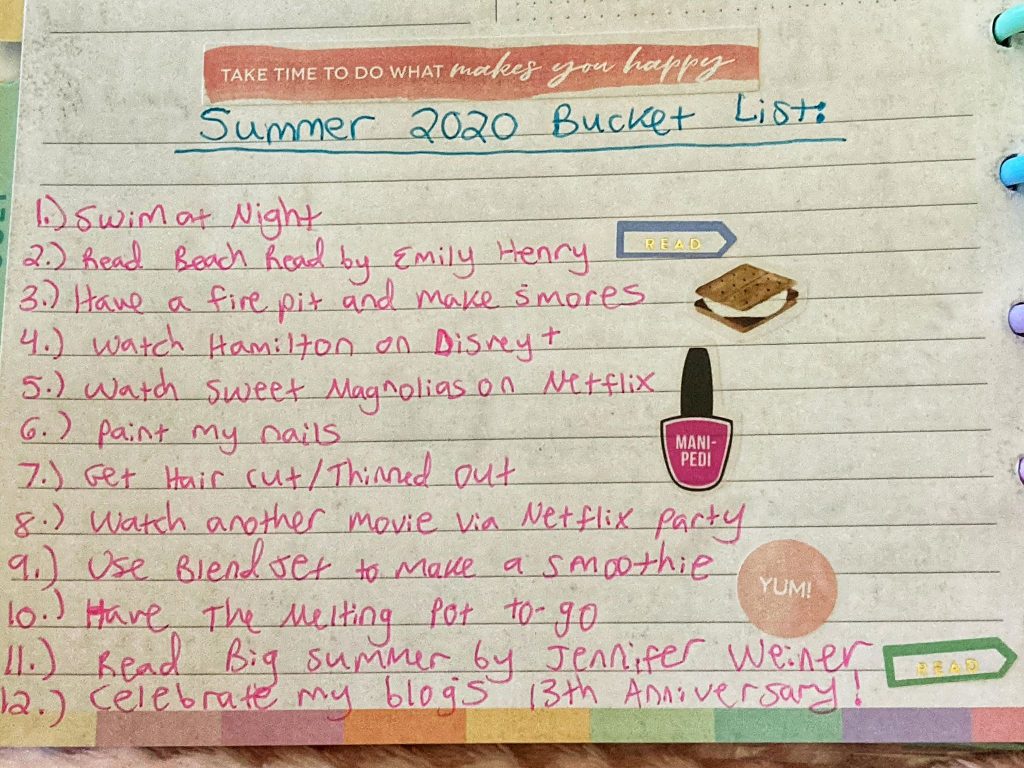 TAKE TIME TO DO WHAT makes you happy
Summer 2020 Bucket List:
1.) Swim at Night
2.) Read Beach Read by Emily Henry
READ
3.) Have a fire pit and make s'mores
4.) Watch Hamilton on Disney+
5.) Watch Sweet Magnolias on Netflix
6.) Paint my nails
MANI-
PEDI
7.) Get Hair cut/Thinned out
8.) Watch another movie via Netflix party
9.) Use BlendJet to make a smoothie
YUM!
10.) Have The Melting Pot to-go
11.) Read Big summer by Jennifer Weiner
READ
12.) Celebrate my blog's 13th Anniversary!